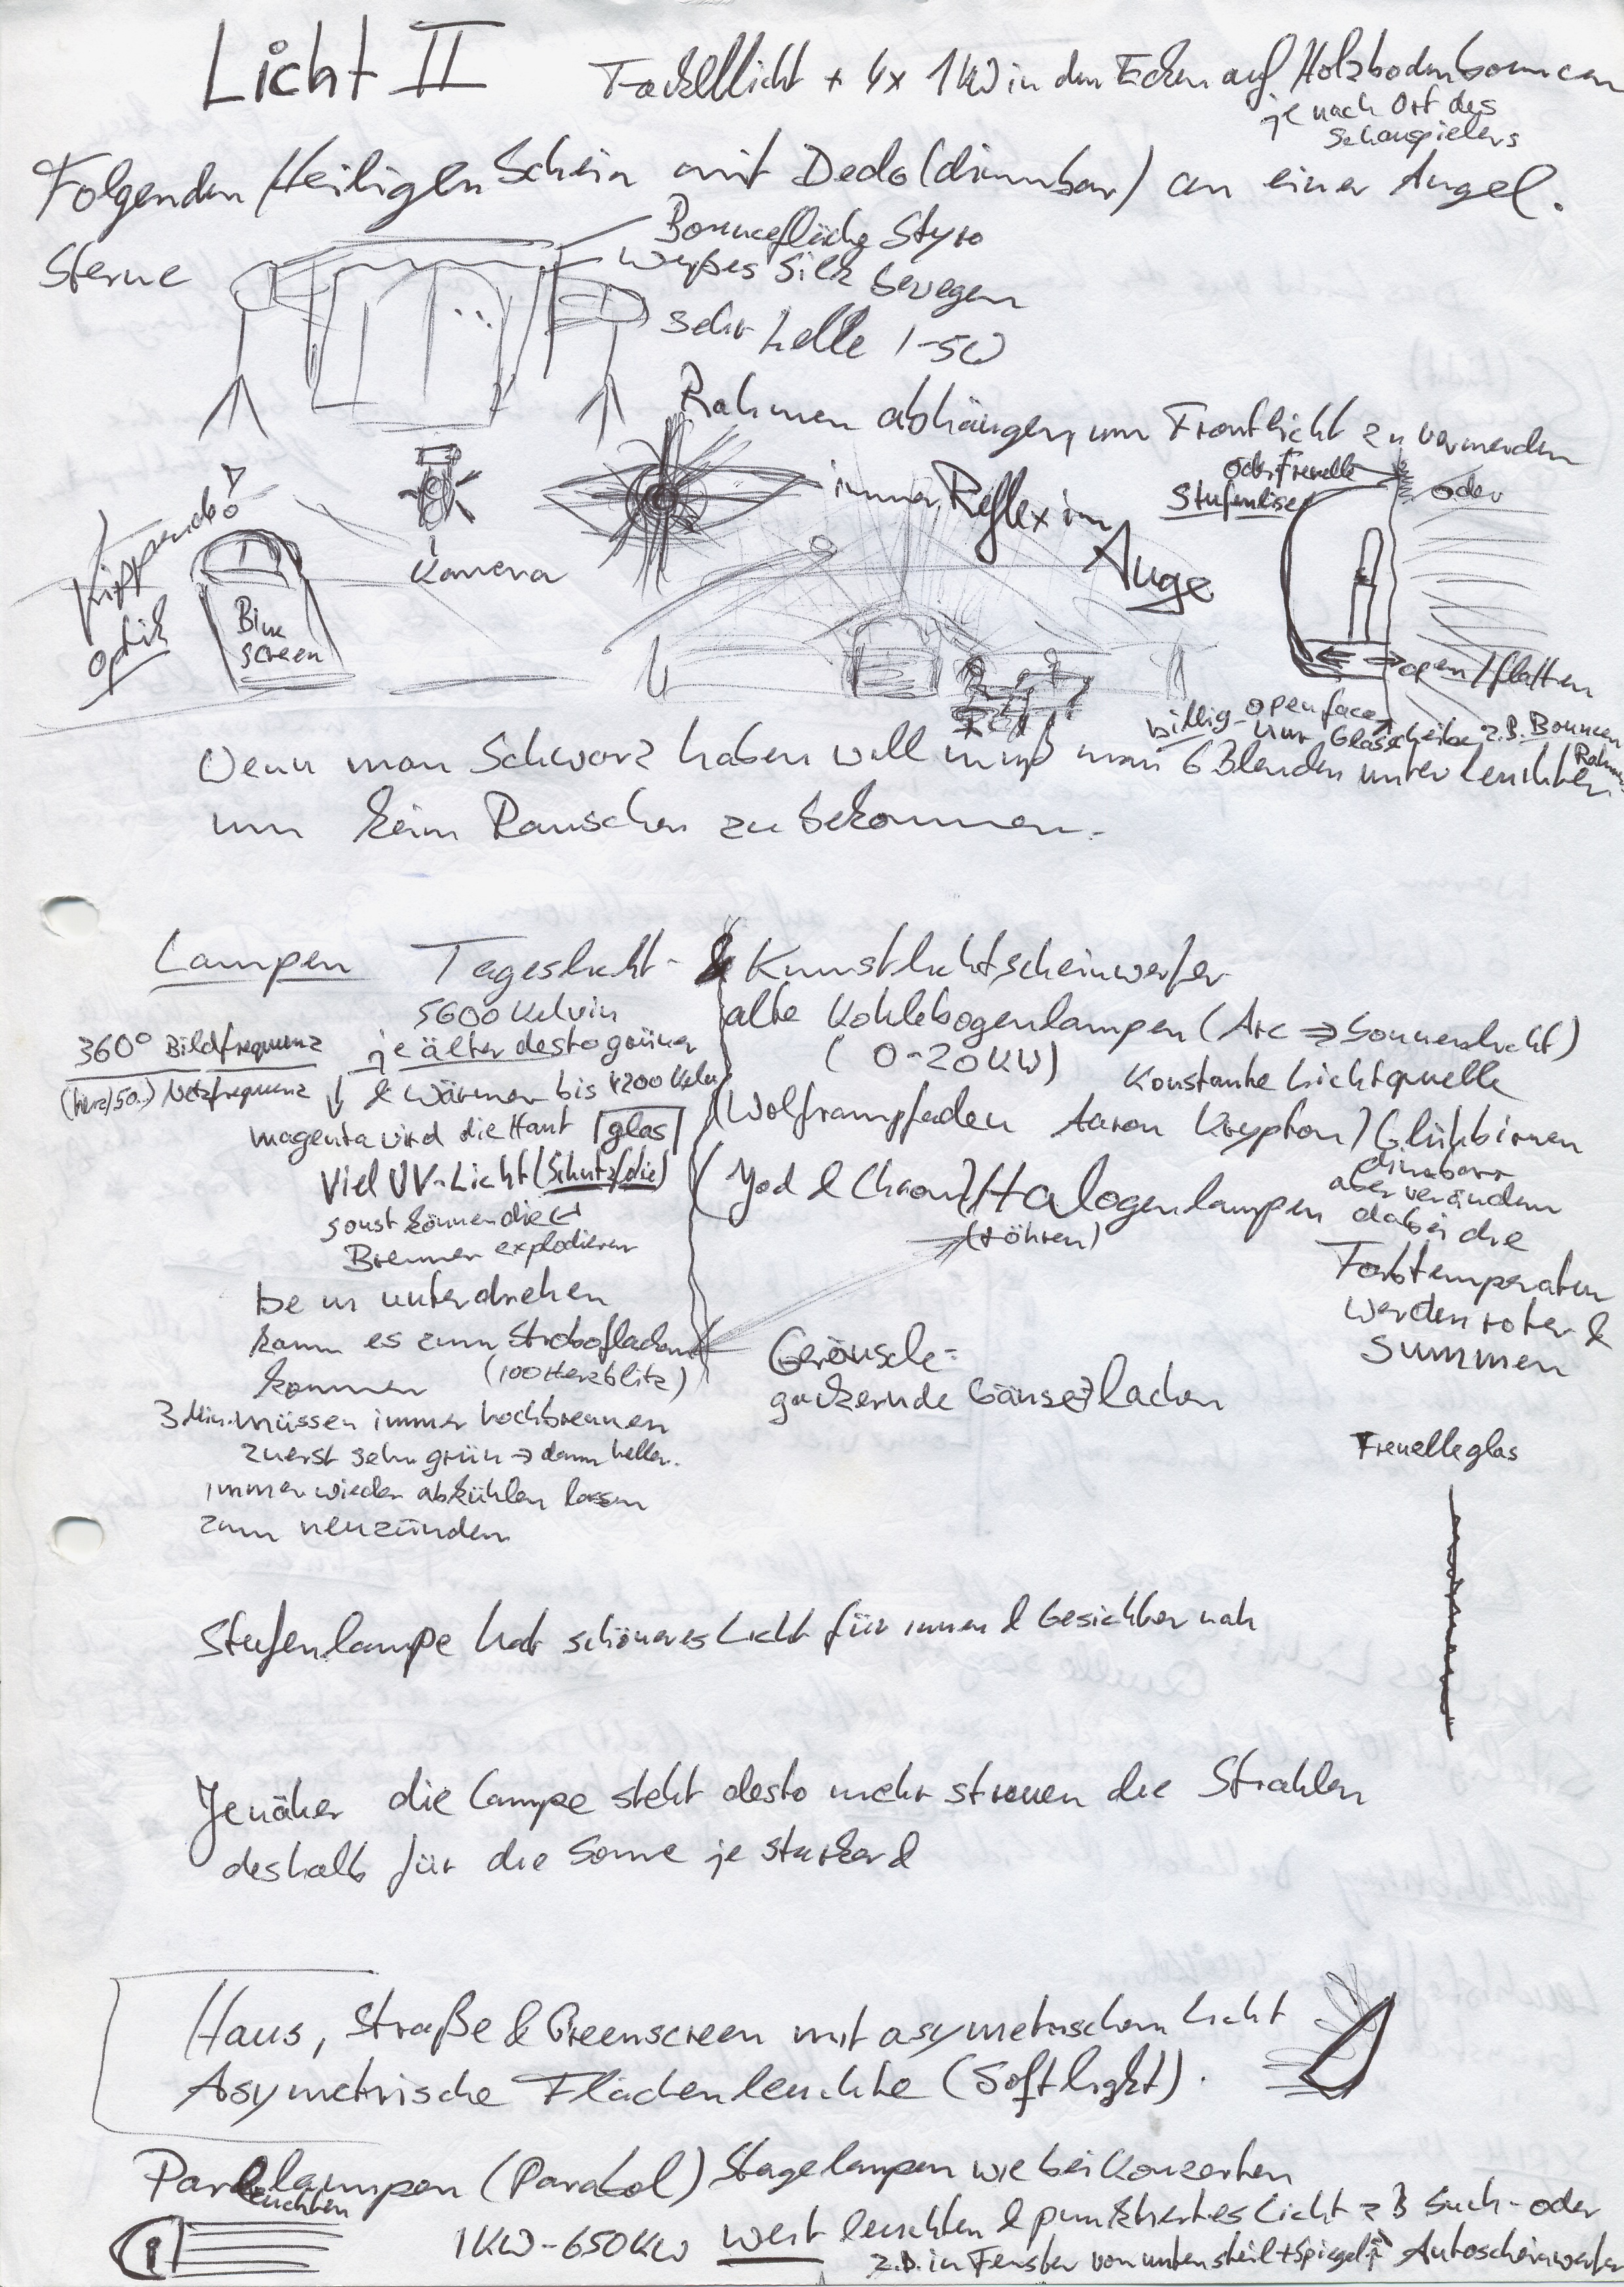 Licht II
Fackellicht + 4x 1KW in den Ecken auf Holzboden bouncen
je nach Ort des
Schauspielers
Folgenden Heiligen Schein mit Dedo (dimmbar) an einer Angel.
Sterne
Bouncefläche Styro
weißes Silk bewegen
sehr helle 1-5W
Rahmen abhängen, um Frontlicht zu vermeiden
Kippende
optik
Blue
screen
Kamera
immer Reflex im
Auge
oder Frenelle
Stufenlinse
oder
open/flatten
billig - openface
nur Glasscheibe z.B. Bouncen
Rahmen
Wenn man Schwarz haben will muß man 6 Blenden unterleuchten
um kein Rauschen zu bekommen.
Lampen Tageslicht- & Kunstlichtscheinwerfer
5600 Kelvin
360° Bildfrequenz
(herz/50.) Netzfrequenz
je älter desto grüner
& wärmer bis 4200 Kelv
magenta wird die Haut glas
Viel UV-Licht (Schutz/die)
sonst können die
Brenner explodieren
beim unterdrehen
kann es zum Stroboflackern
kommen (100 Herzblitz)
3 Min. müssen immer hochbrennen
zuerst sehr grün → dann heller.
immer wieder abkühlen lassen
zum neuzünden
alte Kohlebogenlampen (Arc ⇒ Sonnenlicht)
(0-20KW) Konstante Lichtquelle
(Wolframpfaden Aaron Krypton) Glühbirnen
(Jod & Chrom) Halogenlampen
(röhren)
dimmbar
aber verändern
dabei die
Farbtemperatur
werden roter &
summen
Geräusche:
gackernde Gänse lachen
Frenelleglas
Stufenlampe hat schöneres Licht für innen & Gesichter nah
Je näher die Lampe steht desto mehr streuen die Strahlen
deshalb für die Sonne je starker d
Haus, Straße & Greenscreen mit asymetrischem Licht
Asymetrische Flächenleuchte (Softlight).
Parlampen (Parabol) Stagelampen wie bei Konzerten
leuchten
1KW-650KW weit leuchten & punktiertes Licht z B Such- oder
z.B. in Fenster von unten steil + Spiegel Autoscheinwerfer